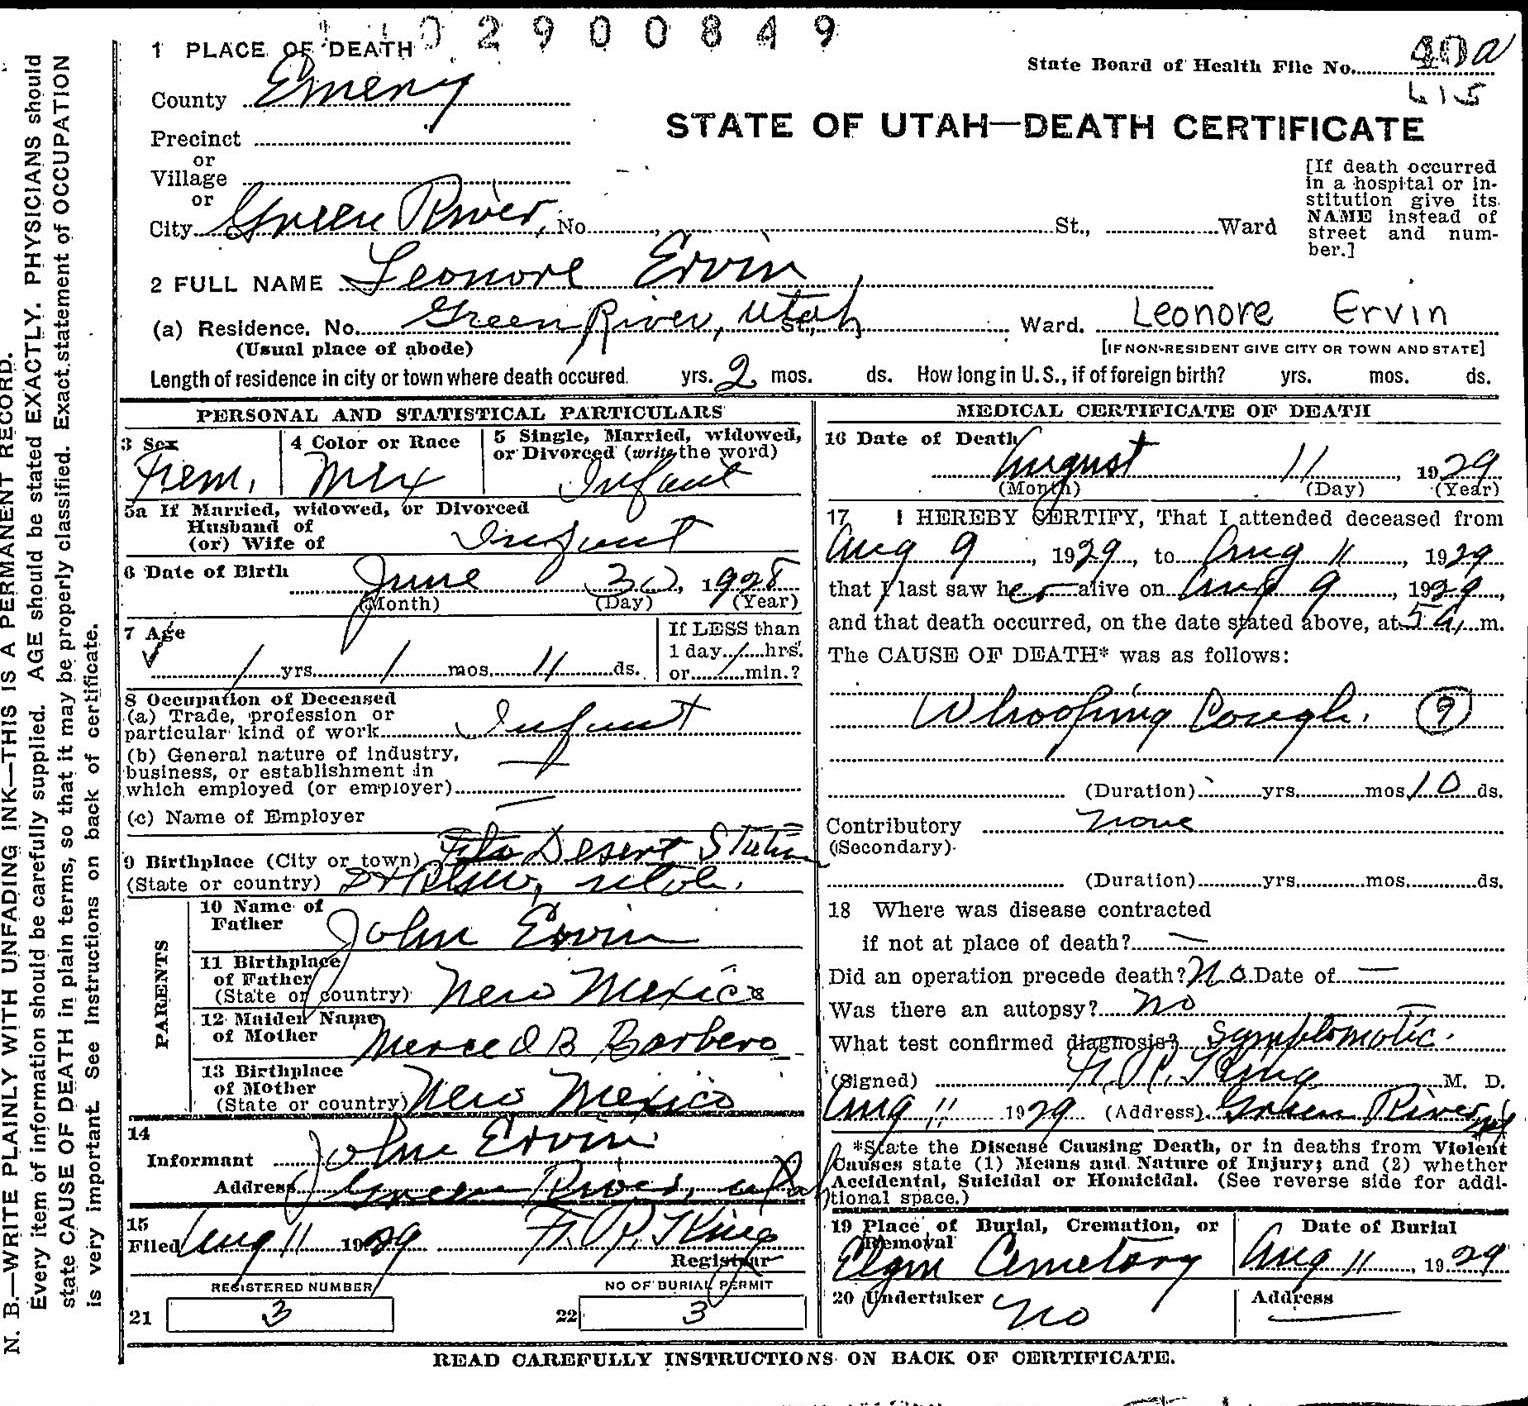 02900849
1 PLACE OF DEATH
State Board of Health File No.
County Emery
STATE OF UTAH—DEATH CERTIFICATE
Precinct
or
Village
or
City Green River, No. St., Ward
[If death occurred
in a hospital or in-
stitution give its
NAME instead of
street and num-
ber.]
2 FULL NAME Leonore Ervin
(a) Residence. No. Green River, Utah St., Ward. Leonore Ervin
(Usual place of abode)
[IF NON-RESIDENT GIVE CITY OR TOWN AND STATE]
Length of residence in city or town where death occured. yrs. 2 mos. ds. How long in U. S., if of foreign birth? yrs. mos. ds.
PERSONAL AND STATISTICAL PARTICULARS
3 Sex Fem.
4 Color or Race Mex
5 Single, Married, widowed,
or Divorced (write the word)
Infant
5a If Married, widowed, or Divorced
Husband of
(or) Wife of Infant
6 Date of Birth June 30, 1928
(Month) (Day) (Year)
7 Age
1 yrs. 1 mos. 11 ds.
If LESS than
1 day hrs.
or min.?
8 Occupation of Deceased
(a) Trade, profession or
particular kind of work Infant
(b) General nature of industry,
business, or establishment in
which employed (or employer)
(c) Name of Employer
9 Birthplace (City or town) Desert Station
(State or country) Utah.
PARENTS
10 Name of
Father John Ervin
11 Birthplace
of Father
(State or country) New Mexico
12 Maiden Name
of Mother Merced B Barbero
13 Birthplace
of Mother
(State or country) New Mexico
14
Informant John Ervin
Address Green River, Utah
15
Filed Aug 11 1929 F. R. King
Registrar
REGISTERED NUMBER
21 3
NO OF BURIAL PERMIT
22 3
MEDICAL CERTIFICATE OF DEATH
16 Date of Death
August 11, 1929
(Month) (Day) (Year)
17 I HEREBY CERTIFY, That I attended deceased from
Aug 9, 1929, to Aug 11, 1929
that I last saw her alive on Aug 9, 1929,
and that death occurred, on the date stated above, at 5 a. m.
The CAUSE OF DEATH* was as follows:
Whooping Cough. 9
(Duration) yrs. mos. 10 ds.
Contributory none
(Secondary)
(Duration) yrs. mos. ds.
18 Where was disease contracted
if not at place of death? —
Did an operation precede death? No Date of —
Was there an autopsy? no
What test confirmed diagnosis? Symptomatic.
(Signed) F. R. King M. D.
Aug 11 1929 (Address) Green River, Ut
*State the Disease Causing Death, or in deaths from Violent
Causes state (1) Means and Nature of Injury; and (2) whether
Accidental, Suicidal or Homicidal. (See reverse side for addi-
tional space.)
19 Place of Burial, Cremation, or
Removal
Elgin Cemetary
Date of Burial
Aug 11, 1929
20 Undertaker no
Address —
READ CAREFULLY INSTRUCTIONS ON BACK OF CERTIFICATE.
N. B.—WRITE PLAINLY WITH UNFADING INK—THIS IS A PERMANENT RECORD.
Every item of information should be carefully supplied. AGE should be stated EXACTLY. PHYSICIANS should
state CAUSE OF DEATH in plain terms, so that it may be properly classified. Exact statement of OCCUPATION
is very important. See Instructions on back of certificate.